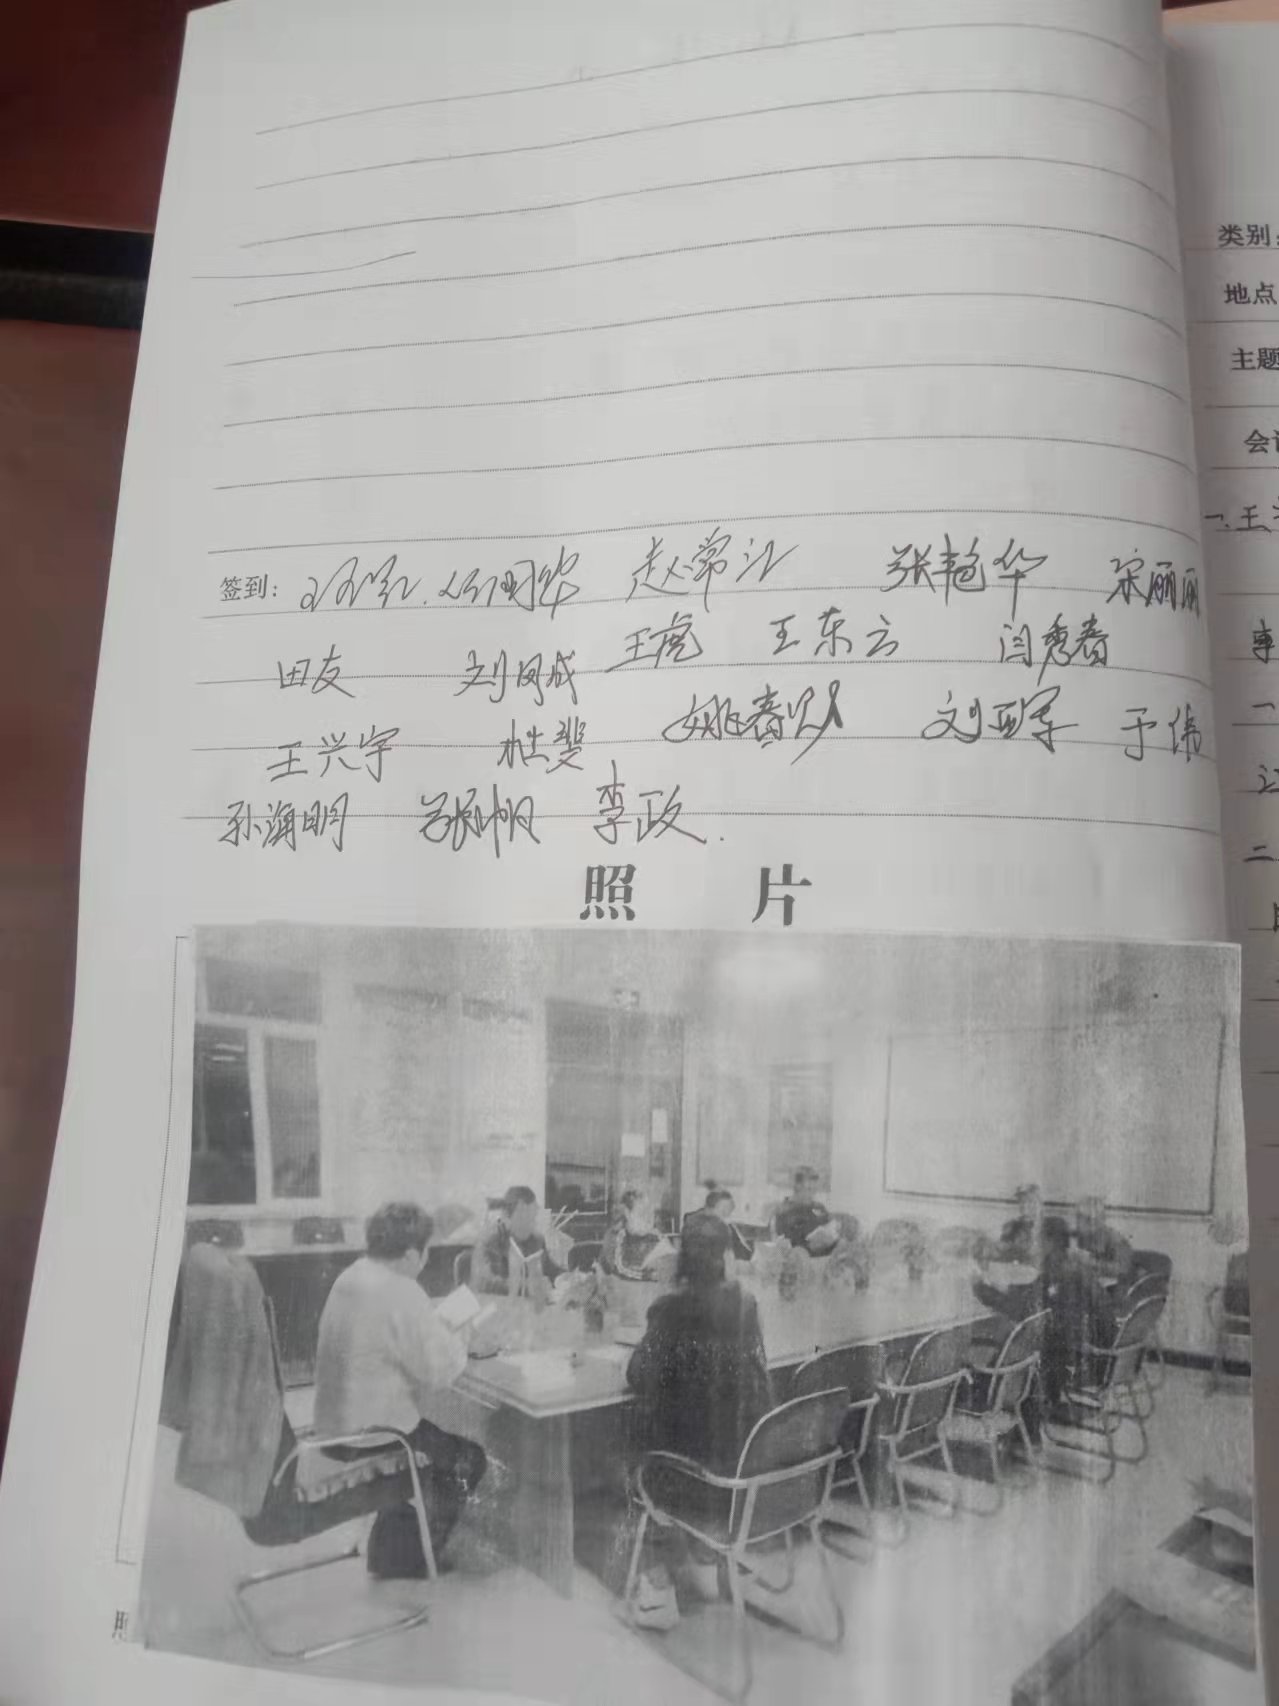 签到: 赵常江 张艳华 宋丽丽
田友 刘凤成 王虎 王东云 闫秀春
王兴宇 杜斐 姚春 刘亚军 于伟
孙海明 张帆 李政.
照 片
类别:
地点
主题
会
一.王
事
一
江
二